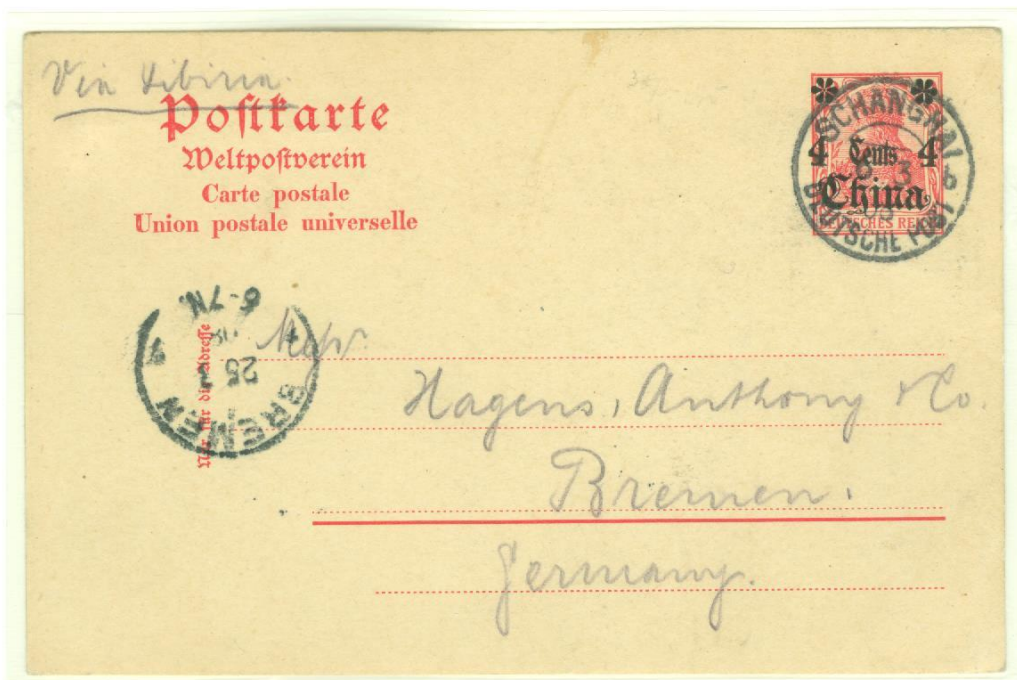 Via Sibiria
Postkarte
Weltpostverein
Carte postale
Union postale universelle
SCHANGHAI
4 Cents 4
China
DEUTSCHES REICH
DEUTSCHE POST
6-7N.
25
3
BREMEN
Nur für die Adresse
Hagens, Anthony & Co.
Bremen.
Germany.